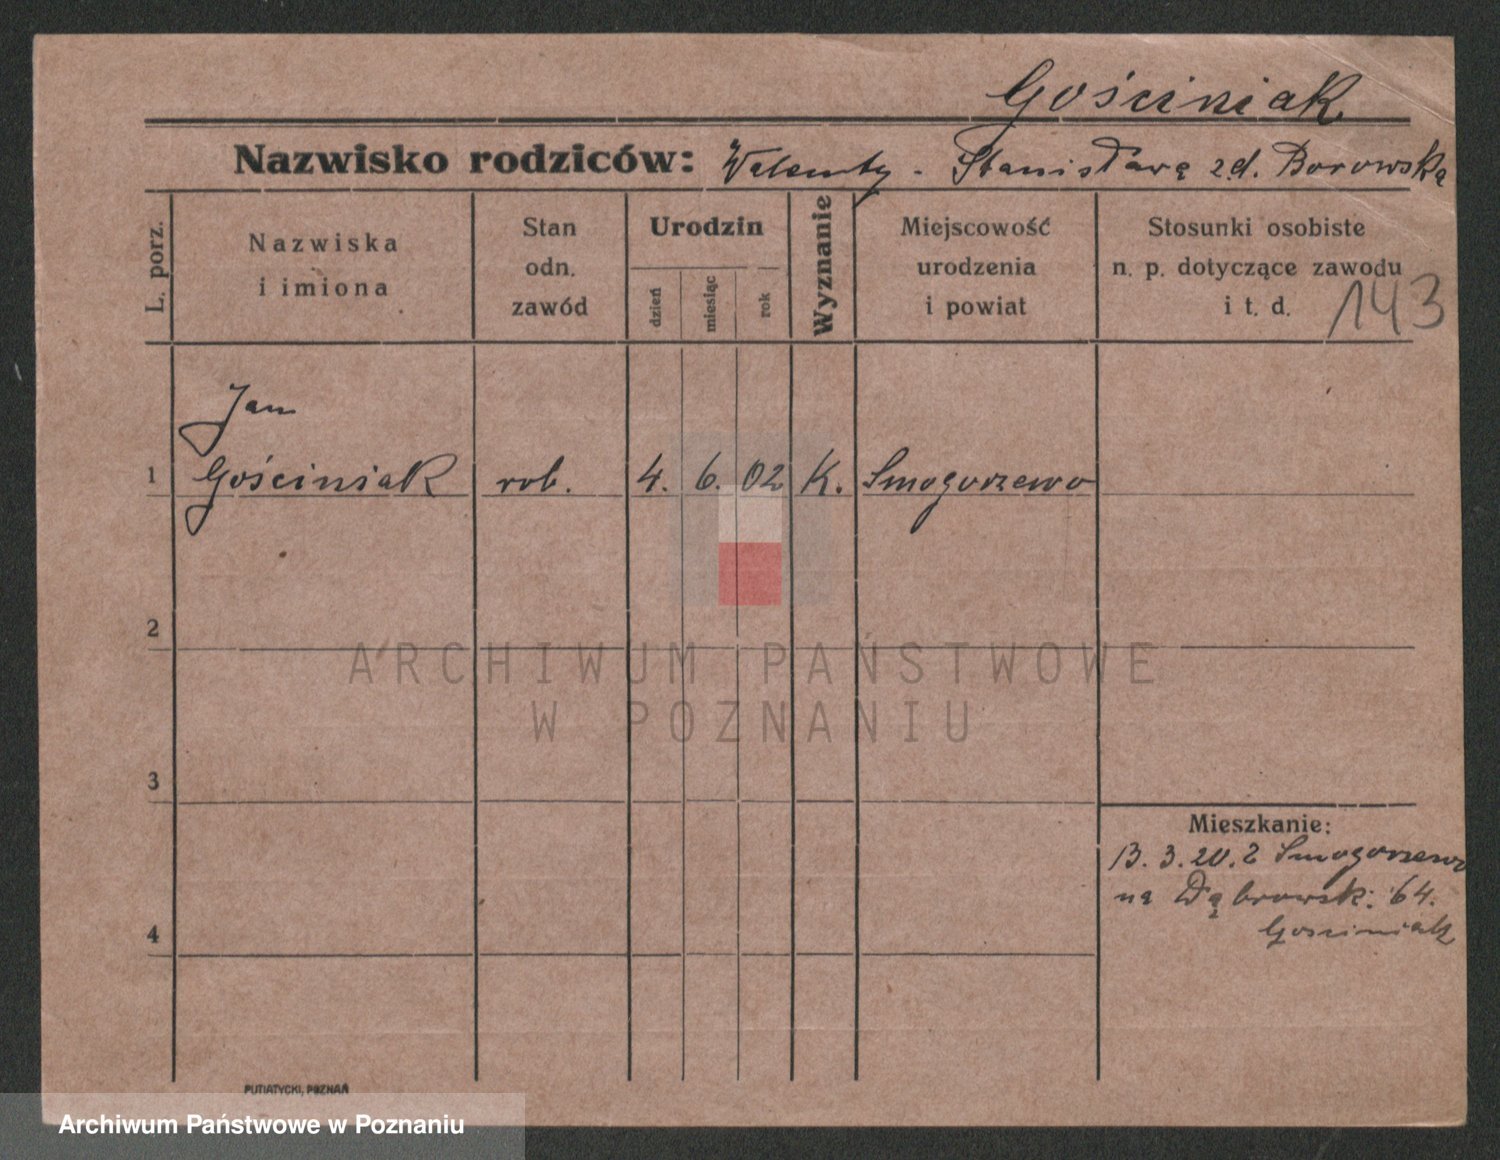 Gościniak
Nazwisko rodziców: Walenty - Stanisława z d. Borowska
L. porz.
Nazwiska
i imiona
Stan
odn.
zawód
Urodzin
dzień
miesiąc
rok
Wyznanie
Miejscowość
urodzenia
i powiat
Stosunki osobiste
n. p. dotyczące zawodu
i t. d.
143
Jan
1 Gościniak rob. 4. 6. 02 K. Smogorzewo
2
ARCHIWUM PAŃSTWOWE
W POZNANIU
3
Mieszkanie:
13. 3. 20. z Smogorzewo
na Dąbrowsk. 64.
Gościniak
4
PUTIATYCKI, POZNAŃ
Archiwum Państwowe w Poznaniu